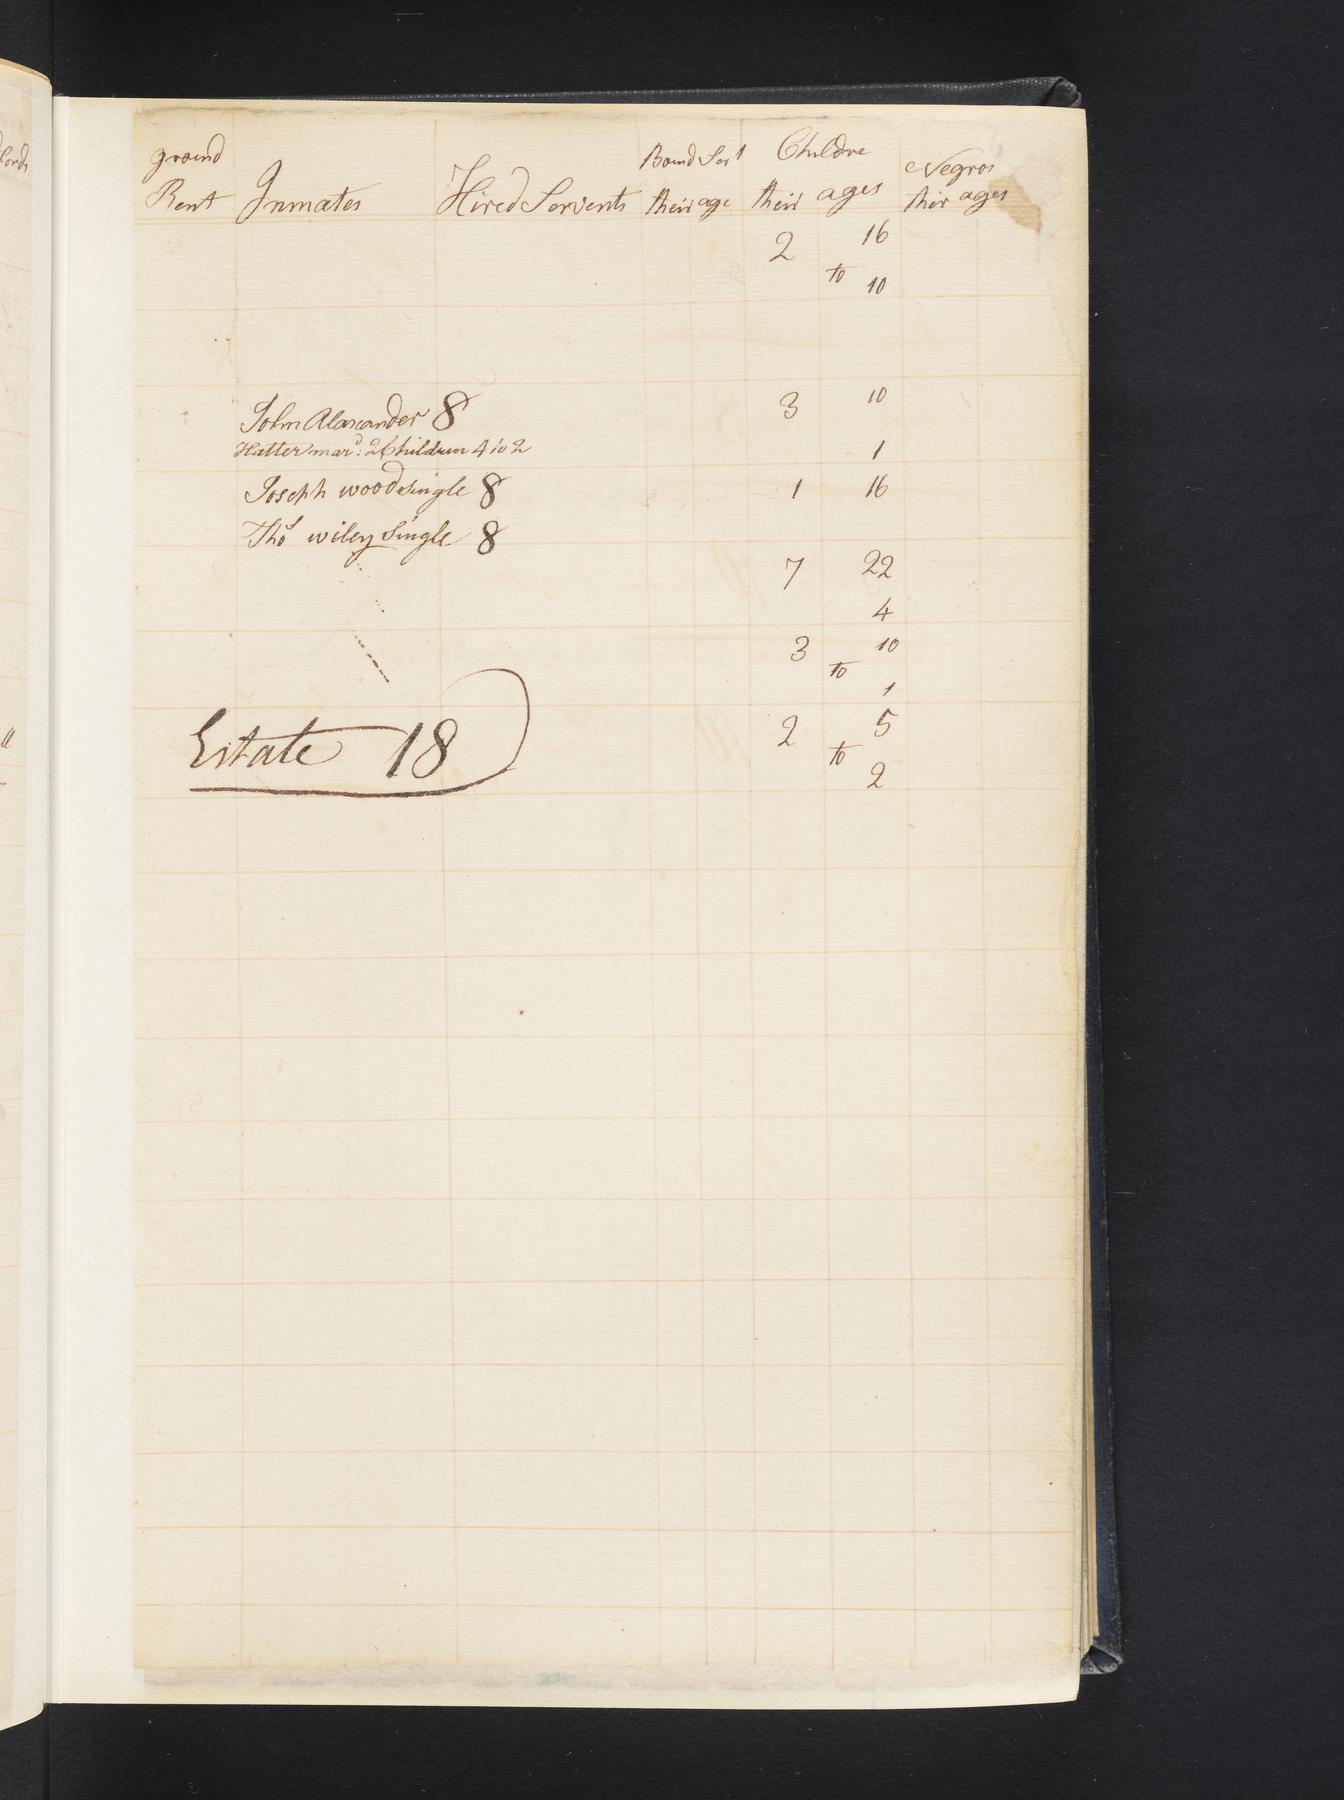 ground Bound Sert Childre Negros
Rent Inmates Hired Servents their age their ages thir ages
2 16
to 10
John Alaxander 8 3 10
Hatter mard: 2 Children 4 to 2 1
Joseph wood single 8 1 16
Thos wiley single 8
7 22
4
3 10
to
1
Estate 18 2 5
to
2